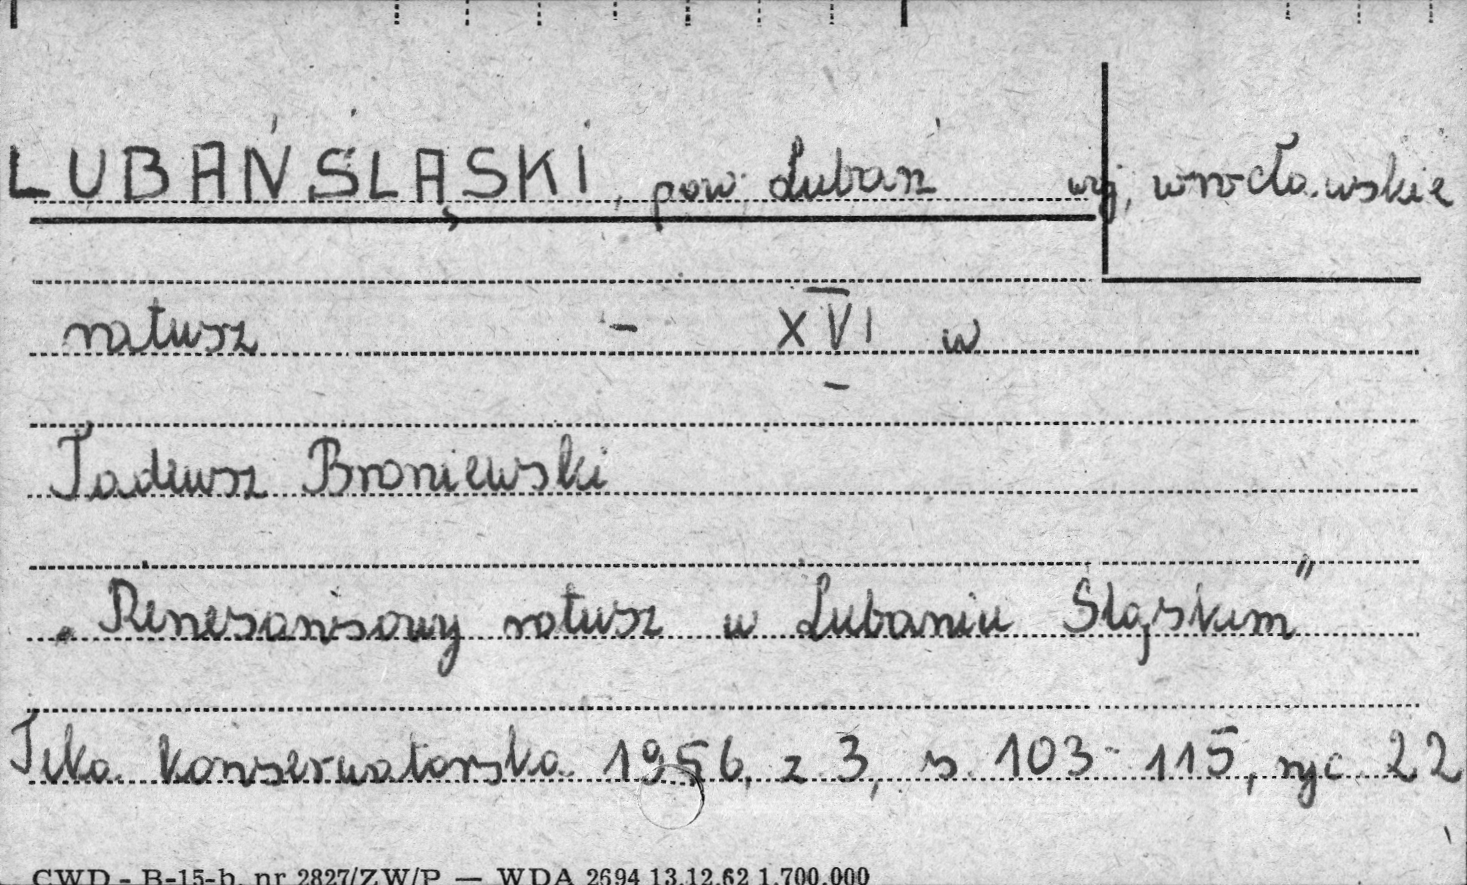 LUBAŃ ŚLĄSKI, pow. Lubań woj. wrocławskie
ratusz - XVI w
Tadeusz Broniewski
„Renesansowy ratusz w Lubaniu Śląskim"
Teka Konserwatorska 1956, z 3, s. 103-115, ryc. 22
CWD - B-15-b. nr 2827/ZW/P — WDA 2694 13.12.62 1.700.000